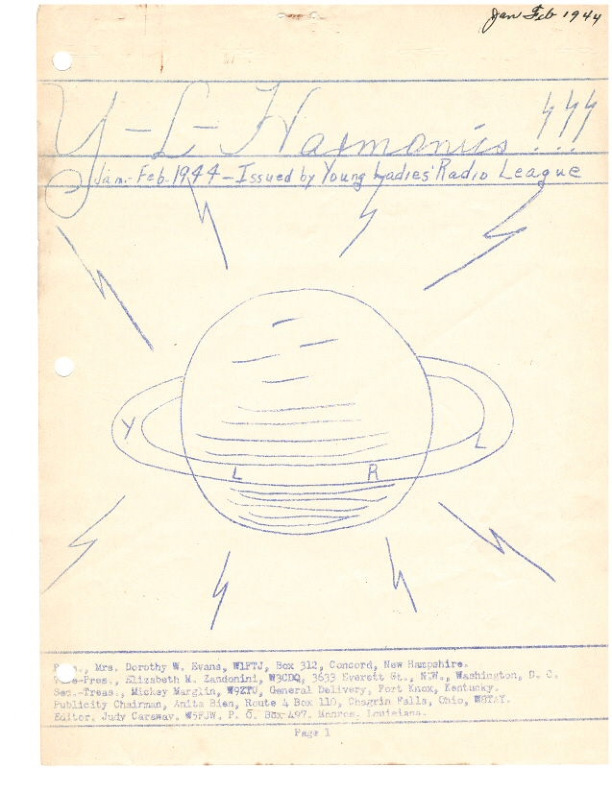 Jan Feb 1944
Y-L-Harmonics !!!
Jan.-Feb. 1944 - Issued by Young Ladies' Radio League
Y L R L
Mrs. Dorothy W. Evans, W1FTJ, Box 312, Concord, New Hampshire.
Elizabeth M. Zandonini, W3CDQ, 3633 Everett St., N.W., Washington, D. C.
Sec.-Treas., Mickey Marglin, W9ZTU, General Delivery, Fort Knox, Kentucky.
Publicity Chairman, Anita Bien, Route 4 Box 110, Chagrin Falls, Ohio, W8TAY.
Editor, Judy Caraway, W5FJW, P. O. Box 497, Monroe, Louisiana.
Page 1